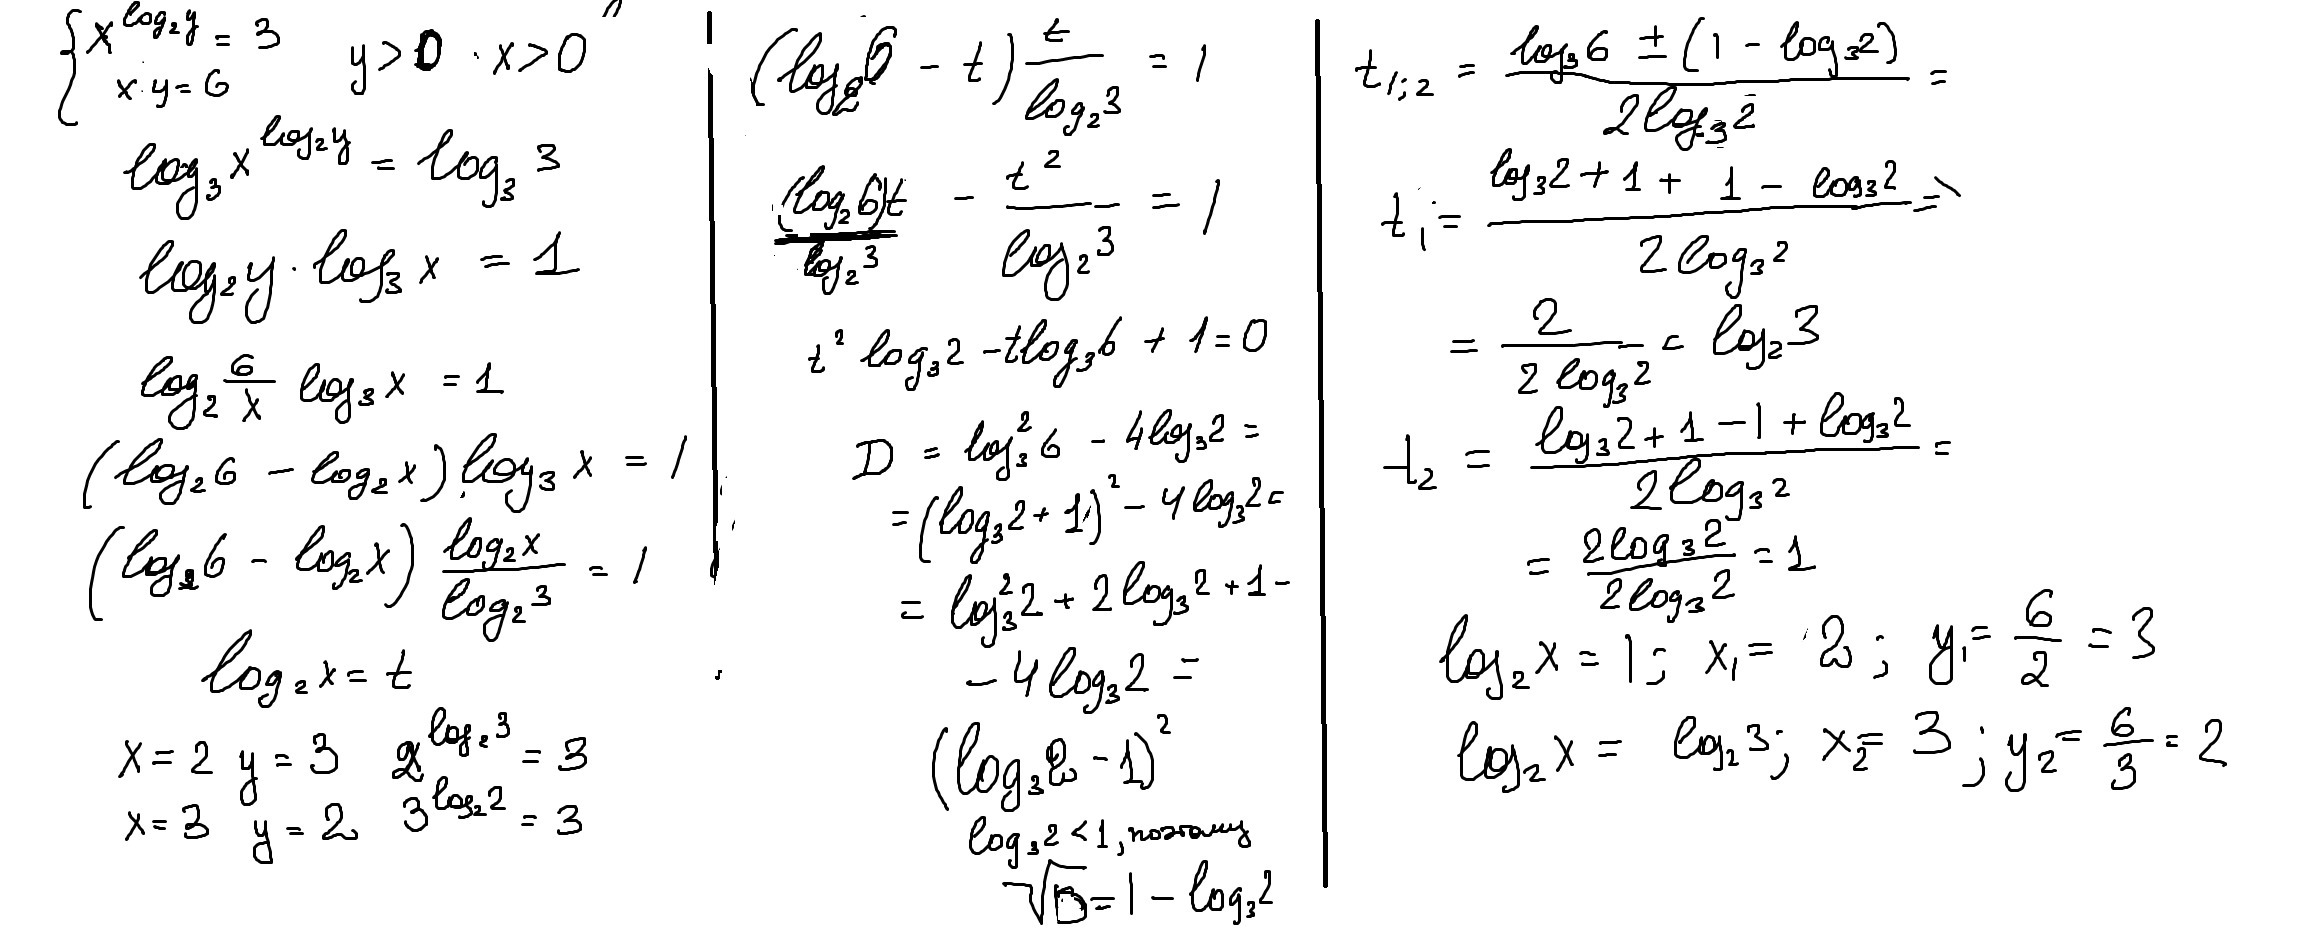 { x^{log₂y} = 3   y>0 · x>0
x·y=6
log₃ x^{log₂y} = log₃ 3
log₂y · log₃ x = 1
log₂ 6/x log₃ x = 1
(log₂6 − log₂x) · log₃ x = 1
(log₂6 − log₂x) log₂x / log₂3 = 1
log₂x = t
x=2 y=3 2^{log₂3} = 3
x=3 y=2 3^{log₂2} = 3
(log₂6 − t) t / log₂3 = 1
(log₂6)t / log₂3 − t² / log₂3 = 1
t² log₃2 − tlog₃6 + 1=0
D = log₃²6 − 4log₃2 =
=(log₃2+1)² − 4log₃2=
= log₃²2 + 2log₃2 +1−
−4log₃2 =
(log₃2 −1)²
log₃2<1, поэтому
√D=1−log₃2
t₁;₂ = log₃6 ± (1 − log₃2) / 2log₃2 =
t₁ = log₃2+1+1−log₃2 / 2log₃2 =
= 2 / 2log₃2 = log₂3
t₂ = log₃2+1−1+log₃2 / 2log₃2 =
= 2log₃2 / 2log₃2 = 1
log₂x = 1; x₁= 2; y₁= 6/2 = 3
log₂x = log₂3; x₂= 3; y₂= 6/3 = 2